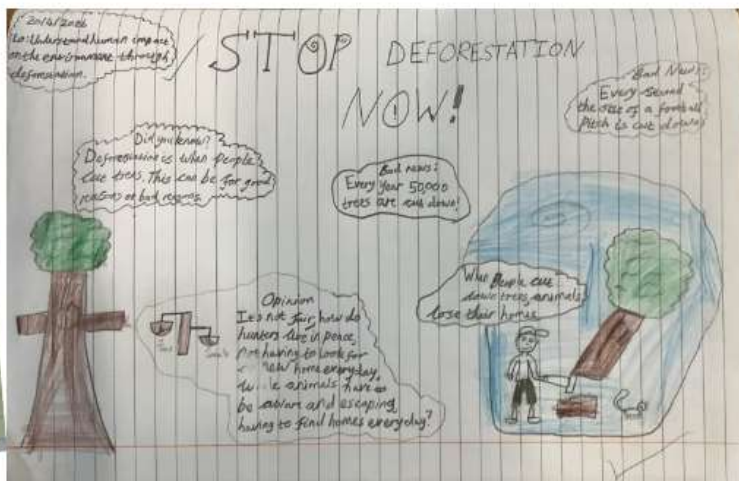 20/4/2026
Lo: Understand human impact
on the environment through
deforestation.
STOP DEFORESTATION
NOW!
Bad News:
Every second
the size of a football
Pitch is cut down
Did you know?
Deforestation is when people
cut trees. This can be for good
reasons or bad reasons.
Bad news:
Every year 50,000
trees are cut down!
When People cut
down trees, animals
lose their homes
Opinion
It's not fair, how do
hunters live in peace,
not having to look for
new home everyday,
while animals have to
be and escaping
having to find homes everyday?